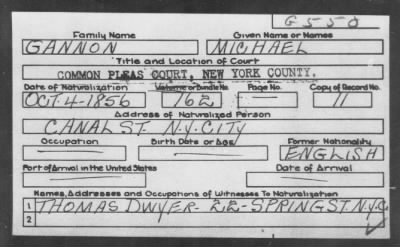 G550
Family Name
Given Name or Names
GANNON
MICHAEL
Title and Location of Court
COMMON PLEAS COURT, NEW YORK COUNTY.
Date of Naturalization
Volume or Bundle No.
Page No.
Copy of Record No.
OCT-4-1856
162
—
11
Address of Naturalized Person
CANAL ST. N.Y. CITY
Occupation
Birth Date or Age
Former Nationality
—
—
ENGLISH
Port of Arrival in the United States
Date of Arrival
—
—
Names, Addresses and Occupations of Witnesses To Naturalization
1 THOMAS DWYER - 22 - SPRING ST. N.Y.C.
2